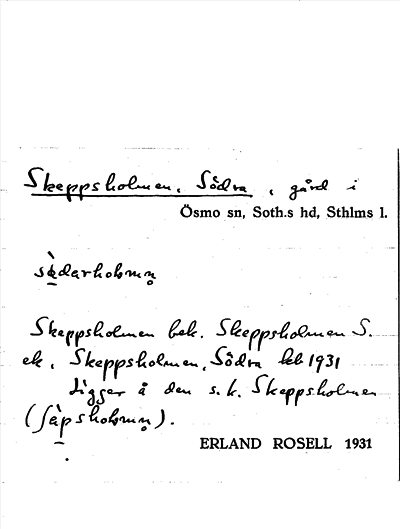 Skeppsholmen, Södra, gård i
Ösmo sn, Soth.s hd, Sthlms l.
Skeppsholmen bek. Skeppsholmen S.
ek, Skeppsholmen, Södra kb 1931
Ligger å den s.k. Skeppsholmen
ERLAND ROSELL 1931